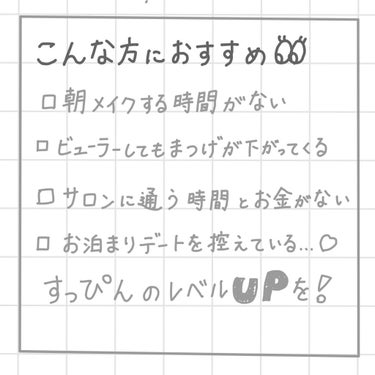 こんな方におすすめ
□朝メイクする時間がない
□ビューラーしてもまつげが下がってくる
□サロンに通う時間とお金がない
□お泊まりデートを控えている...♡
すっぴんのレベルUPを!